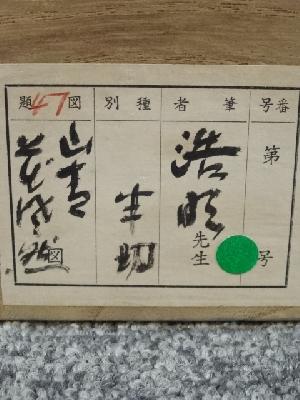 番号
第 号
筆者
浩 先生
種別
半切
図題
47
山青
花欲 図